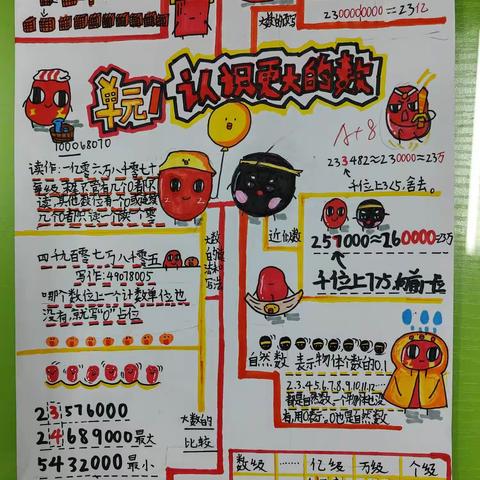 大数的改写
2300000000=23亿
单元1 认识更大的数
A+8
100068070
读作:一亿零六万八千零七十
每级末尾不管有几个0都不
读,其他数位有一个0或连续
几个0都只读一个零
233482≈230000=23万
千位上3<5,舍去。
近似数
257000≈260000=
千位上7>5,向前一位
四千九百零七万八千零五
写作:49078005
哪个数位上一个计数单位也
没有,就写“0”占位
大数的
自然数 表示物体个数的0.1
2.3.4.5.6.7.8.9.10.11.12……
都是自然数。一个物体也没
有,用0表示。0也是自然数
23576000
24689000最大
5432000最小
大数的
比较
数级 …… 亿级 万级 个级